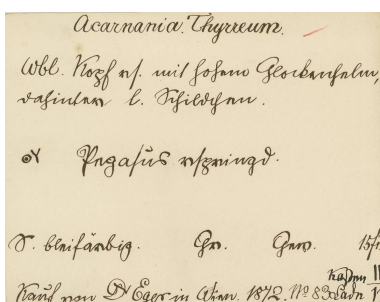 Acarnania. Thyrreum.
Wbl. Kopf rs. mit hohem Glockenhelm,
dahinter l. Schildchen.
Pegasus rspringd.
S. bleifärbig. Gr. Gew. 15/
Kasten
Kauf von Dr Eger in Wien. 1872. No 83 Lade